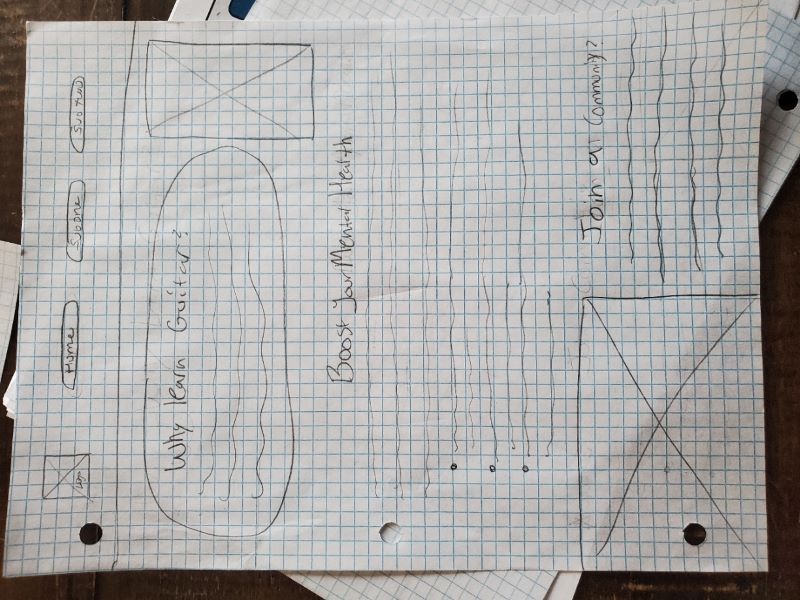 Logo
Home
Subone
Subtwo
Why learn Guitar?
Boost Your Mental Health
Join a Community?